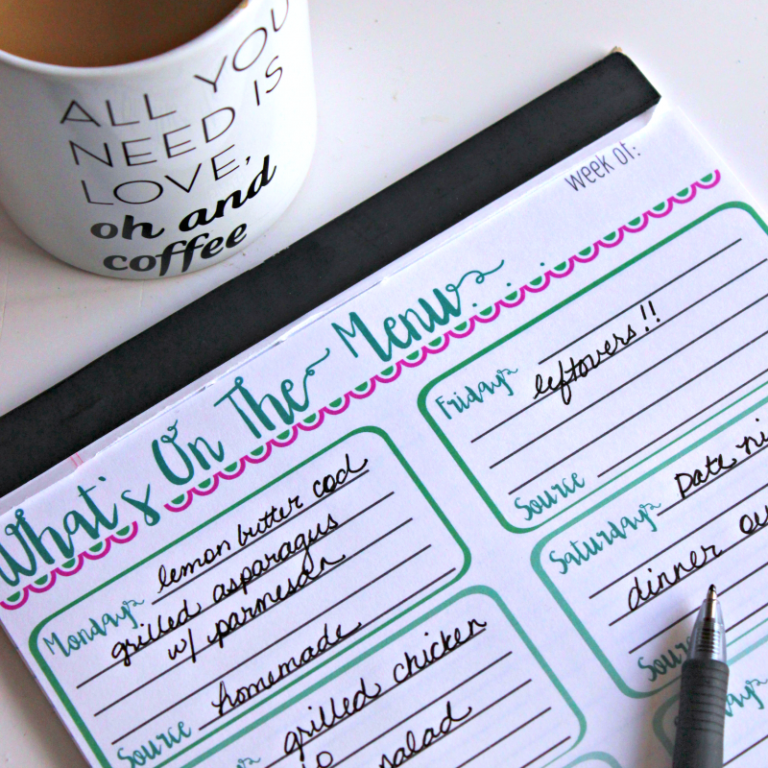 ALL YOU
NEED IS
LOVE,
oh and
coffee
Week of:
What's On The Menu
Monday
lemon butter cod
grilled asparagus
w/ parmesan
Source
homemade
grilled chicken
salad
Friday
leftovers!!
Source
Saturday
date
dinner